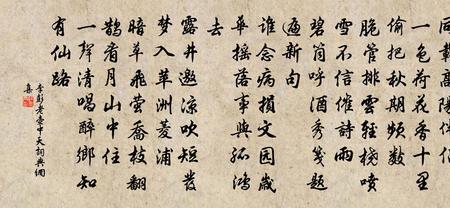 同載高陽伴侶
一色荷花香十里
偷把秋期頻數
脆管排雲輕橈噴
雪不信催詩雨
碧筩呼酒秀箋題
遍新句
誰念病損文园歲
華摇落事與孤鴻
去
露井邀凉吹短髮
夢入蘋洲菱浦
暗草飛螢喬枝翻
鵲看月山中住
一聲清唱醉鄉知
有仙路
李彭老壺中天詞典網
集